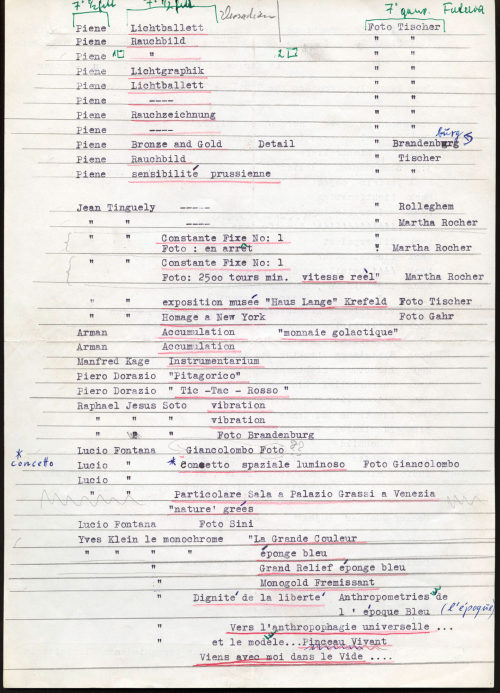 Piene Lichtballett Foto Tischer
Piene Rauchbild " "
Piene 1 " 2 " "
Piene Lichtgraphik " "
Piene Lichtballett " "
Piene ---- " "
Piene Rauchzeichnung " "
Piene ---- " "
Piene Bronze and Gold Detail " Brandenburg
Piene Rauchbild " Tischer
Piene sensibilité prussienne " "
Jean Tinguely ----- " Rolleghem
" " ---- " Martha Rocher
" " Constante Fixe No: 1
Foto : en arret " Martha Rocher
" " Constante Fixe No: 1
Foto: 2500 tours min. vitesse reèl" Martha Rocher
" " exposition musée "Haus Lange" Krefeld Foto Tischer
" " Homage a New York Foto Gahr
Arman Accumulation "monnaie golactique"
Arman Accumulation
Manfred Kage Instrumentarium
Piero Dorazio "Pitagorico"
Piero Dorazio " Tic -Tac - Rosso "
Raphael Jesus Soto vibration
" " " vibration
" " " Foto Brandenburg
Lucio Fontana Giancolombo Foto
concetto Lucio " * Concetto spaziale luminoso Foto Giancolombo
Lucio "
" " Particolare Sala a Palazio Grassi a Venezia
"nature' grées
Lucio Fontana Foto Sini
Yves Klein le monochrome "La Grande Couleur
" " " " éponge bleu
" Grand Relief éponge bleu
" Monogold Fremissant
" Dignité de la liberté Anthropometries de
l ' époque Bleu (l'époque)
" Vers l'anthropophagie universelle ...
" et le modèle...Pinceau Vivant
Viens avec moi dans le Vide ....